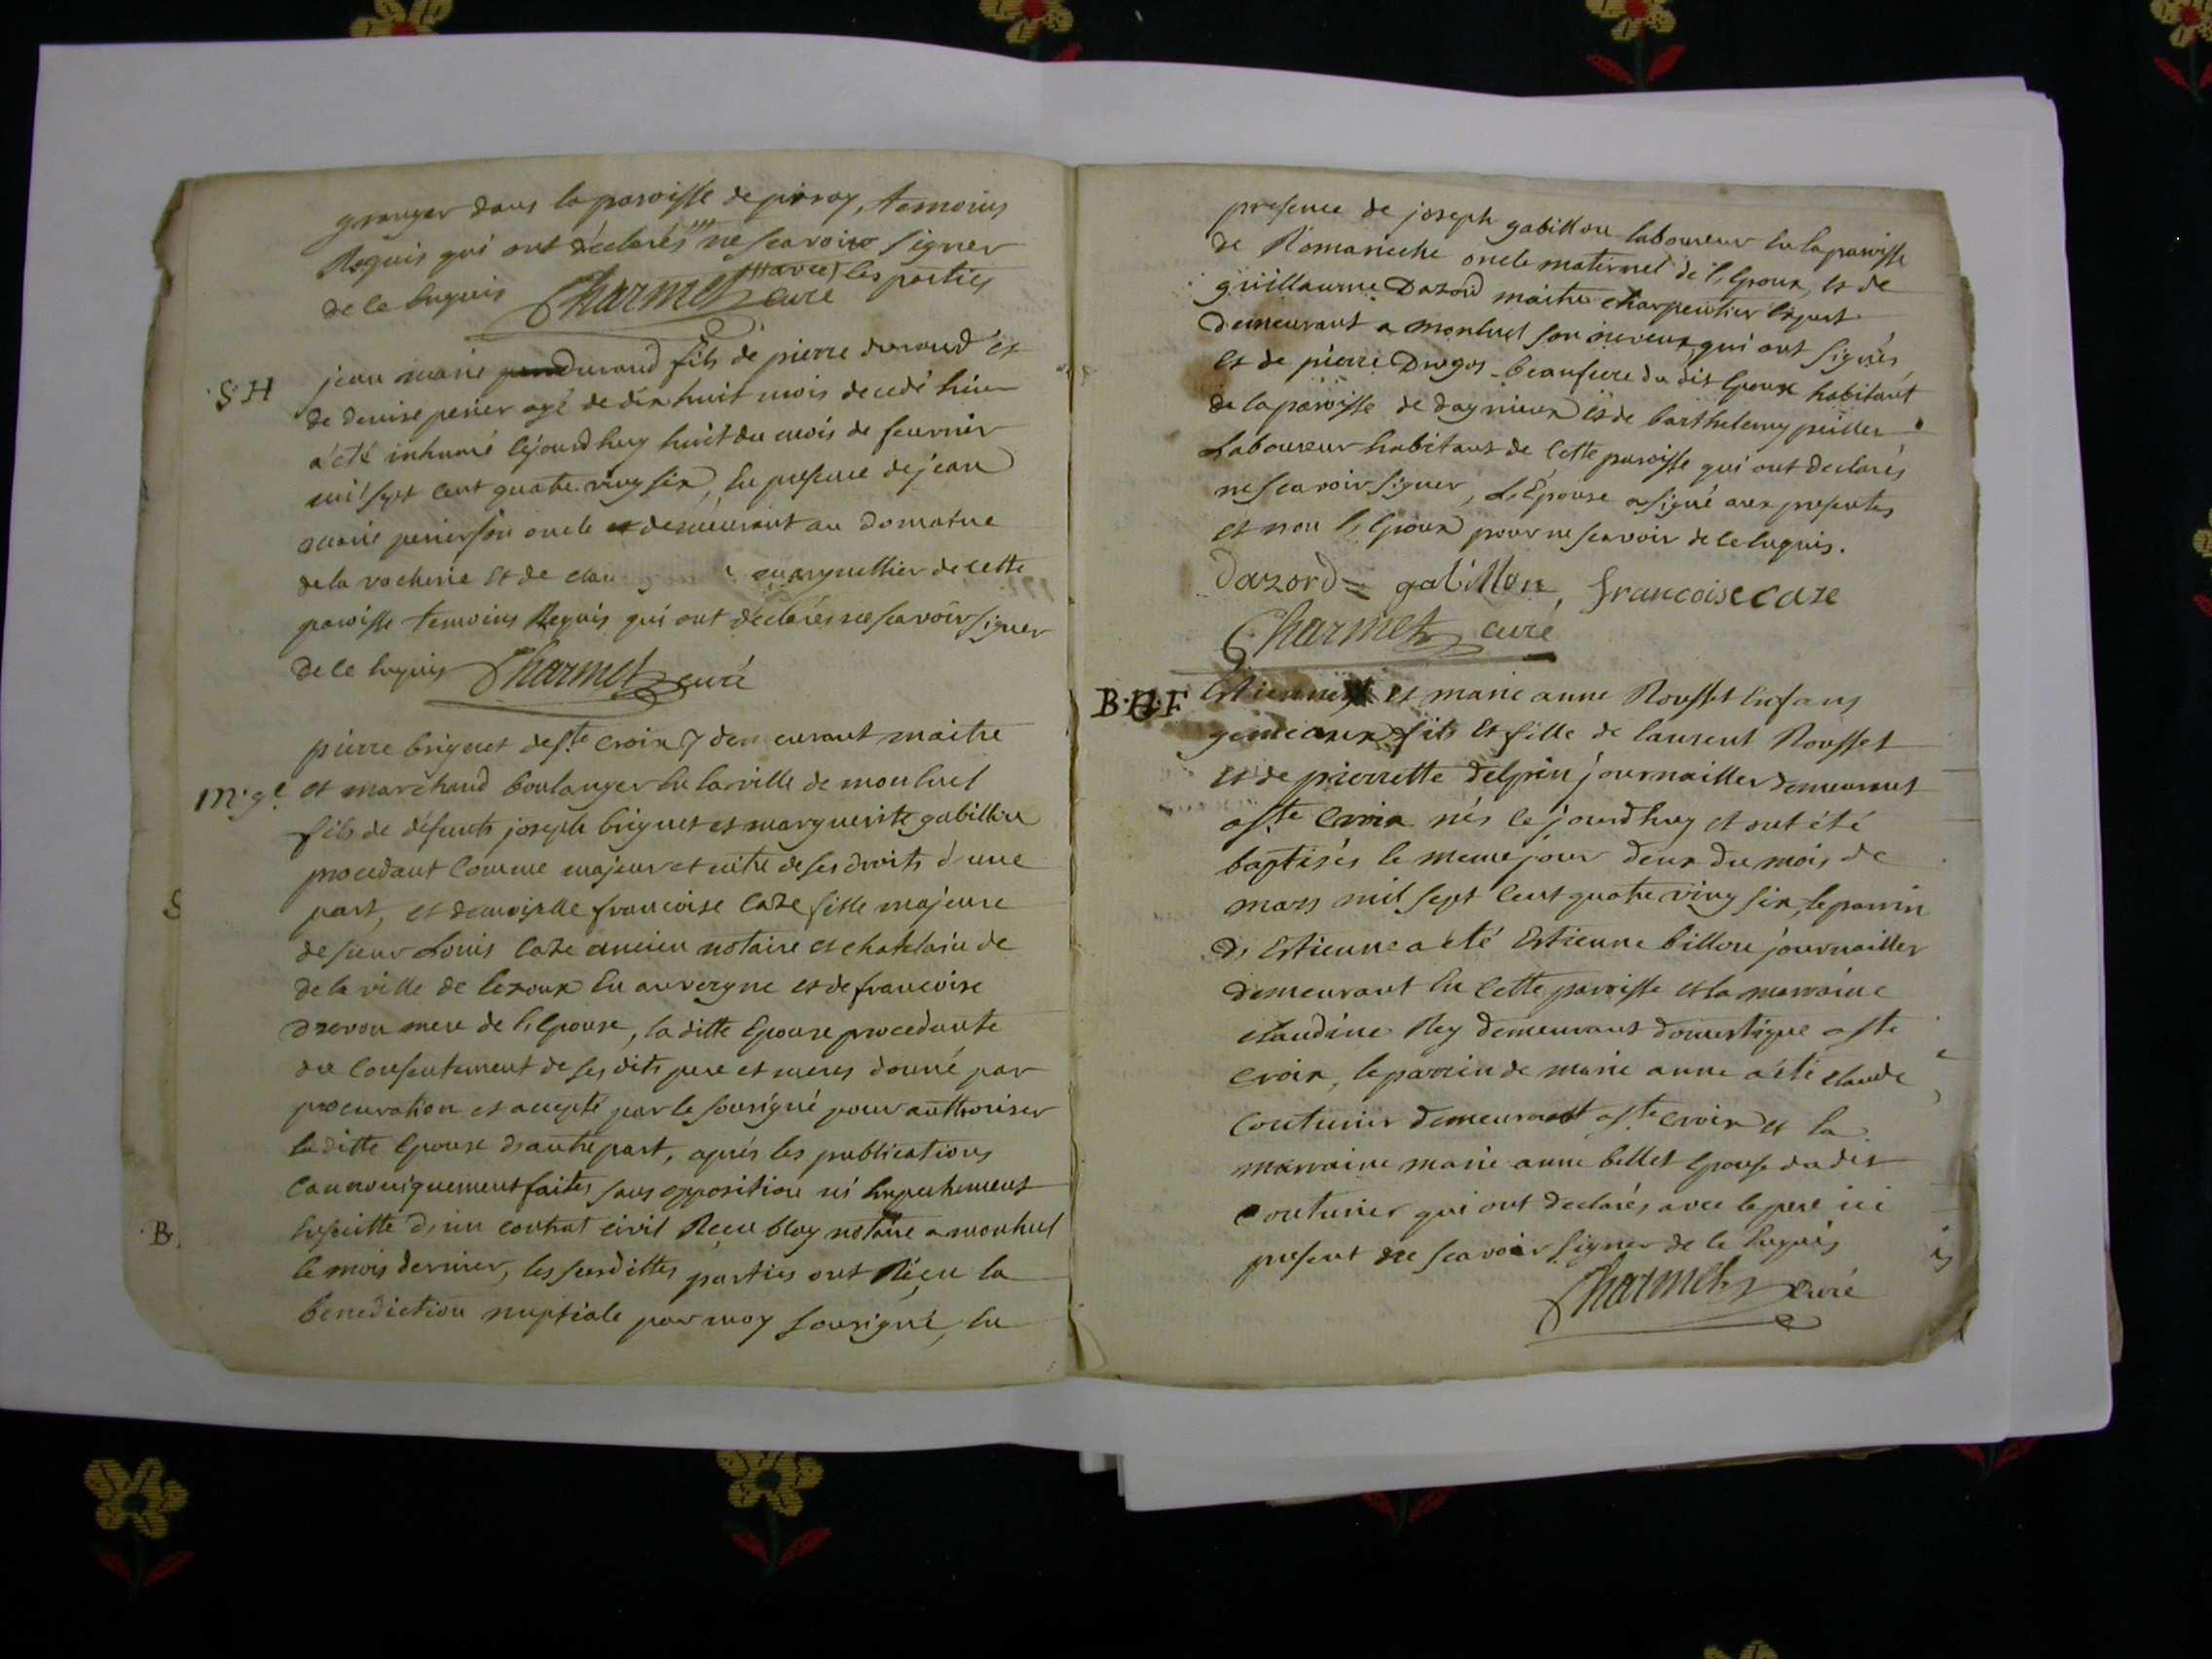 granger dans la paroisse de pizay, temoins
Requis qui ont declarés ne scavoir signer
avec les parties
de ce Enquis Charmet curé
S.H
jean marie durand fils de pierre durand et
de denise perier agé de dix huit mois decedé hier
a été inhumé cejourdhuy huit du mois de feuvrier
mil sept cent quatre ving six, En presence de jean
marie perier son oncle demeurant au domaine
de la vacherie et de clau marguillier de cette
paroisse temoins Requis qui ont declarés ne scavoir signer
de ce Enquis Charmet curé
m.ge
pierre briguet de ste croix y demeurant maitre
et marchand boulanger En la ville de montluel
fils de défunts joseph briguet et marguerite gabillon
procedant comme majeur et mitre de ses droits d'une
part, et demoiselle francoise Caze fille majeure
de sieur Louis Caze ancien notaire et chatelain de
de la ville de lezoux En auvergne et de francoise
mere de l'Epouse, la ditte Epouse procedante
du consentement de ses dits pere et meres donné par
procuration et accepté par le sousigné pour authoriser
la ditte Epouse d'autre part, aprés les publications
cannoniquement faites sans opposition ni Empechement
Ensuitte d'un contrat civil Reçu blay notaire a montluel
le mois dernier, les susdittes parties ont Réçu la
benediction nuptiale par moy sousigné, En
S
B.
presence de joseph gabillon laboureur En la paroisse
de Romaneche oncle maternel de l'Epoux, et de
guillaume Dazord maitre charpentier Expert
demeurant a montluel son neveux, qui ont signés,
et de pierre Drogos beaufrere du dit Epoux habitant
de la paroisse de dagnieux et de barthelemy peiller
Laboureur habitans de cette paroisse qui ont declarés
ne scavoir signer, L'Epouse a signé aux presentes
et non l'Epoux pour ne scavoir de ce Enquis.
Dazord = gabillon, francoise caze
Charmet curé
B.H.F
Estienne et marie anne Rousset Enfans
gemeaux fils et fille de laurent Rousset
et de pierrette delprin journaillier demeurant
a ste Croix nés cejourdhuy et ont été
baptisés le meme jour deux du mois de
mars mil sept cent quatre ving six, le parrin
d'Estienne a été Estienne billon journaillier
demeurant En cette paroisse et la marraine
claudine Rey demeurant domestique a ste
croix, le parrein de marie anne a été claude
couturier demeurant a ste croix et la
marraine marie anne bellet Epouse du dit
couturier qui ont declarés avec le pere ici
present ne scavoir signer de ce Enquis
Charmet curé